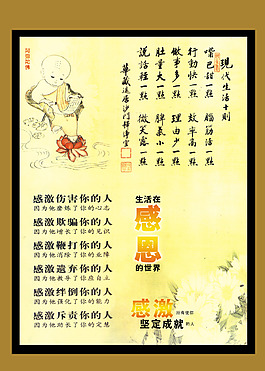 现代生活十则
嘴巴甜一點 腦筋活一點
行动快一點 效率高一點
做事多一點 理由少一點
肚量大一點 脾氣小一點
说話輕一點 微笑露一點
感激伤害你的人
因为他磨炼了你的心志
感激欺骗你的人
因为他增长了你的见识
感激鞭打你的人
因为他消除了你的业障
感激遗弃你的人
因为他教导了你应自立
感激绊倒你的人
因为他强化了你的能力
感激斥责你的人
因为他助长了你的定慧
生活在
感恩
的世界
感激 所有使你
坚定成就 的人